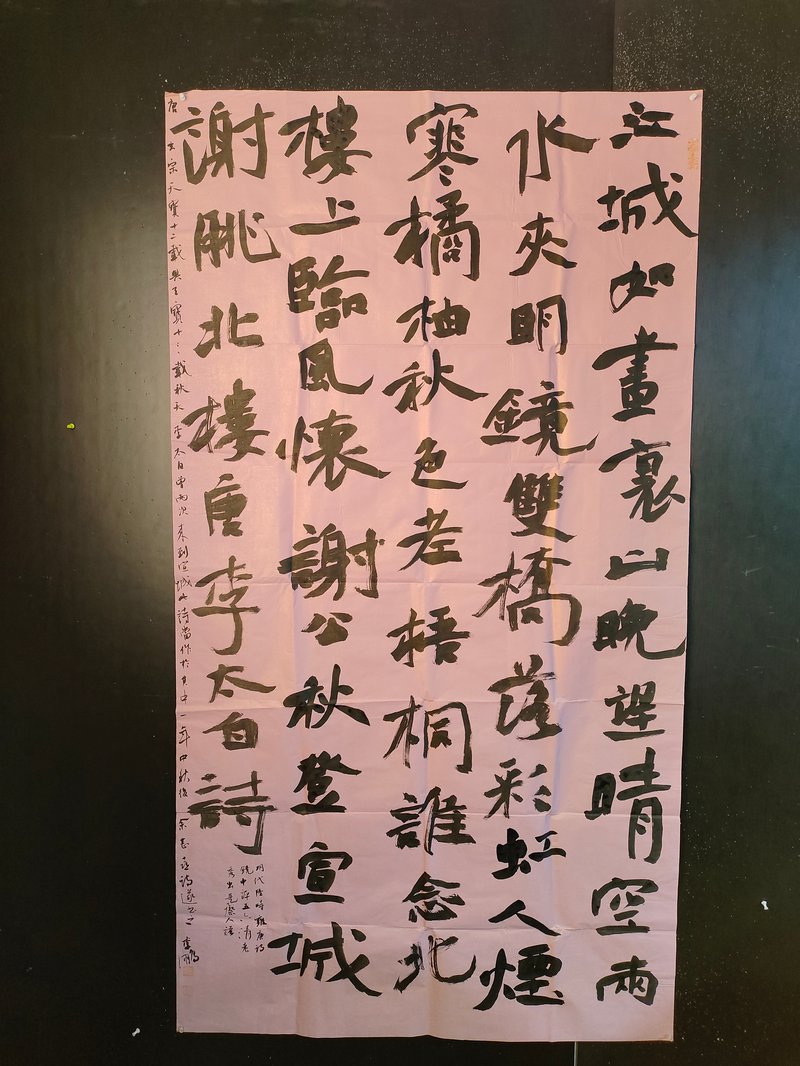 江城如畫裏山晚望晴空兩
水夾明鏡雙橋落彩虹人煙
寒橘柚秋色老梧桐誰念北
樓上臨風懷謝公秋登宣城
謝朓北樓唐李太白詩
唐玄宗天寶十二載與天寶十三載秋天李太白曾兩次來到宣城此詩當作於其中一年中秋後余
李鵬